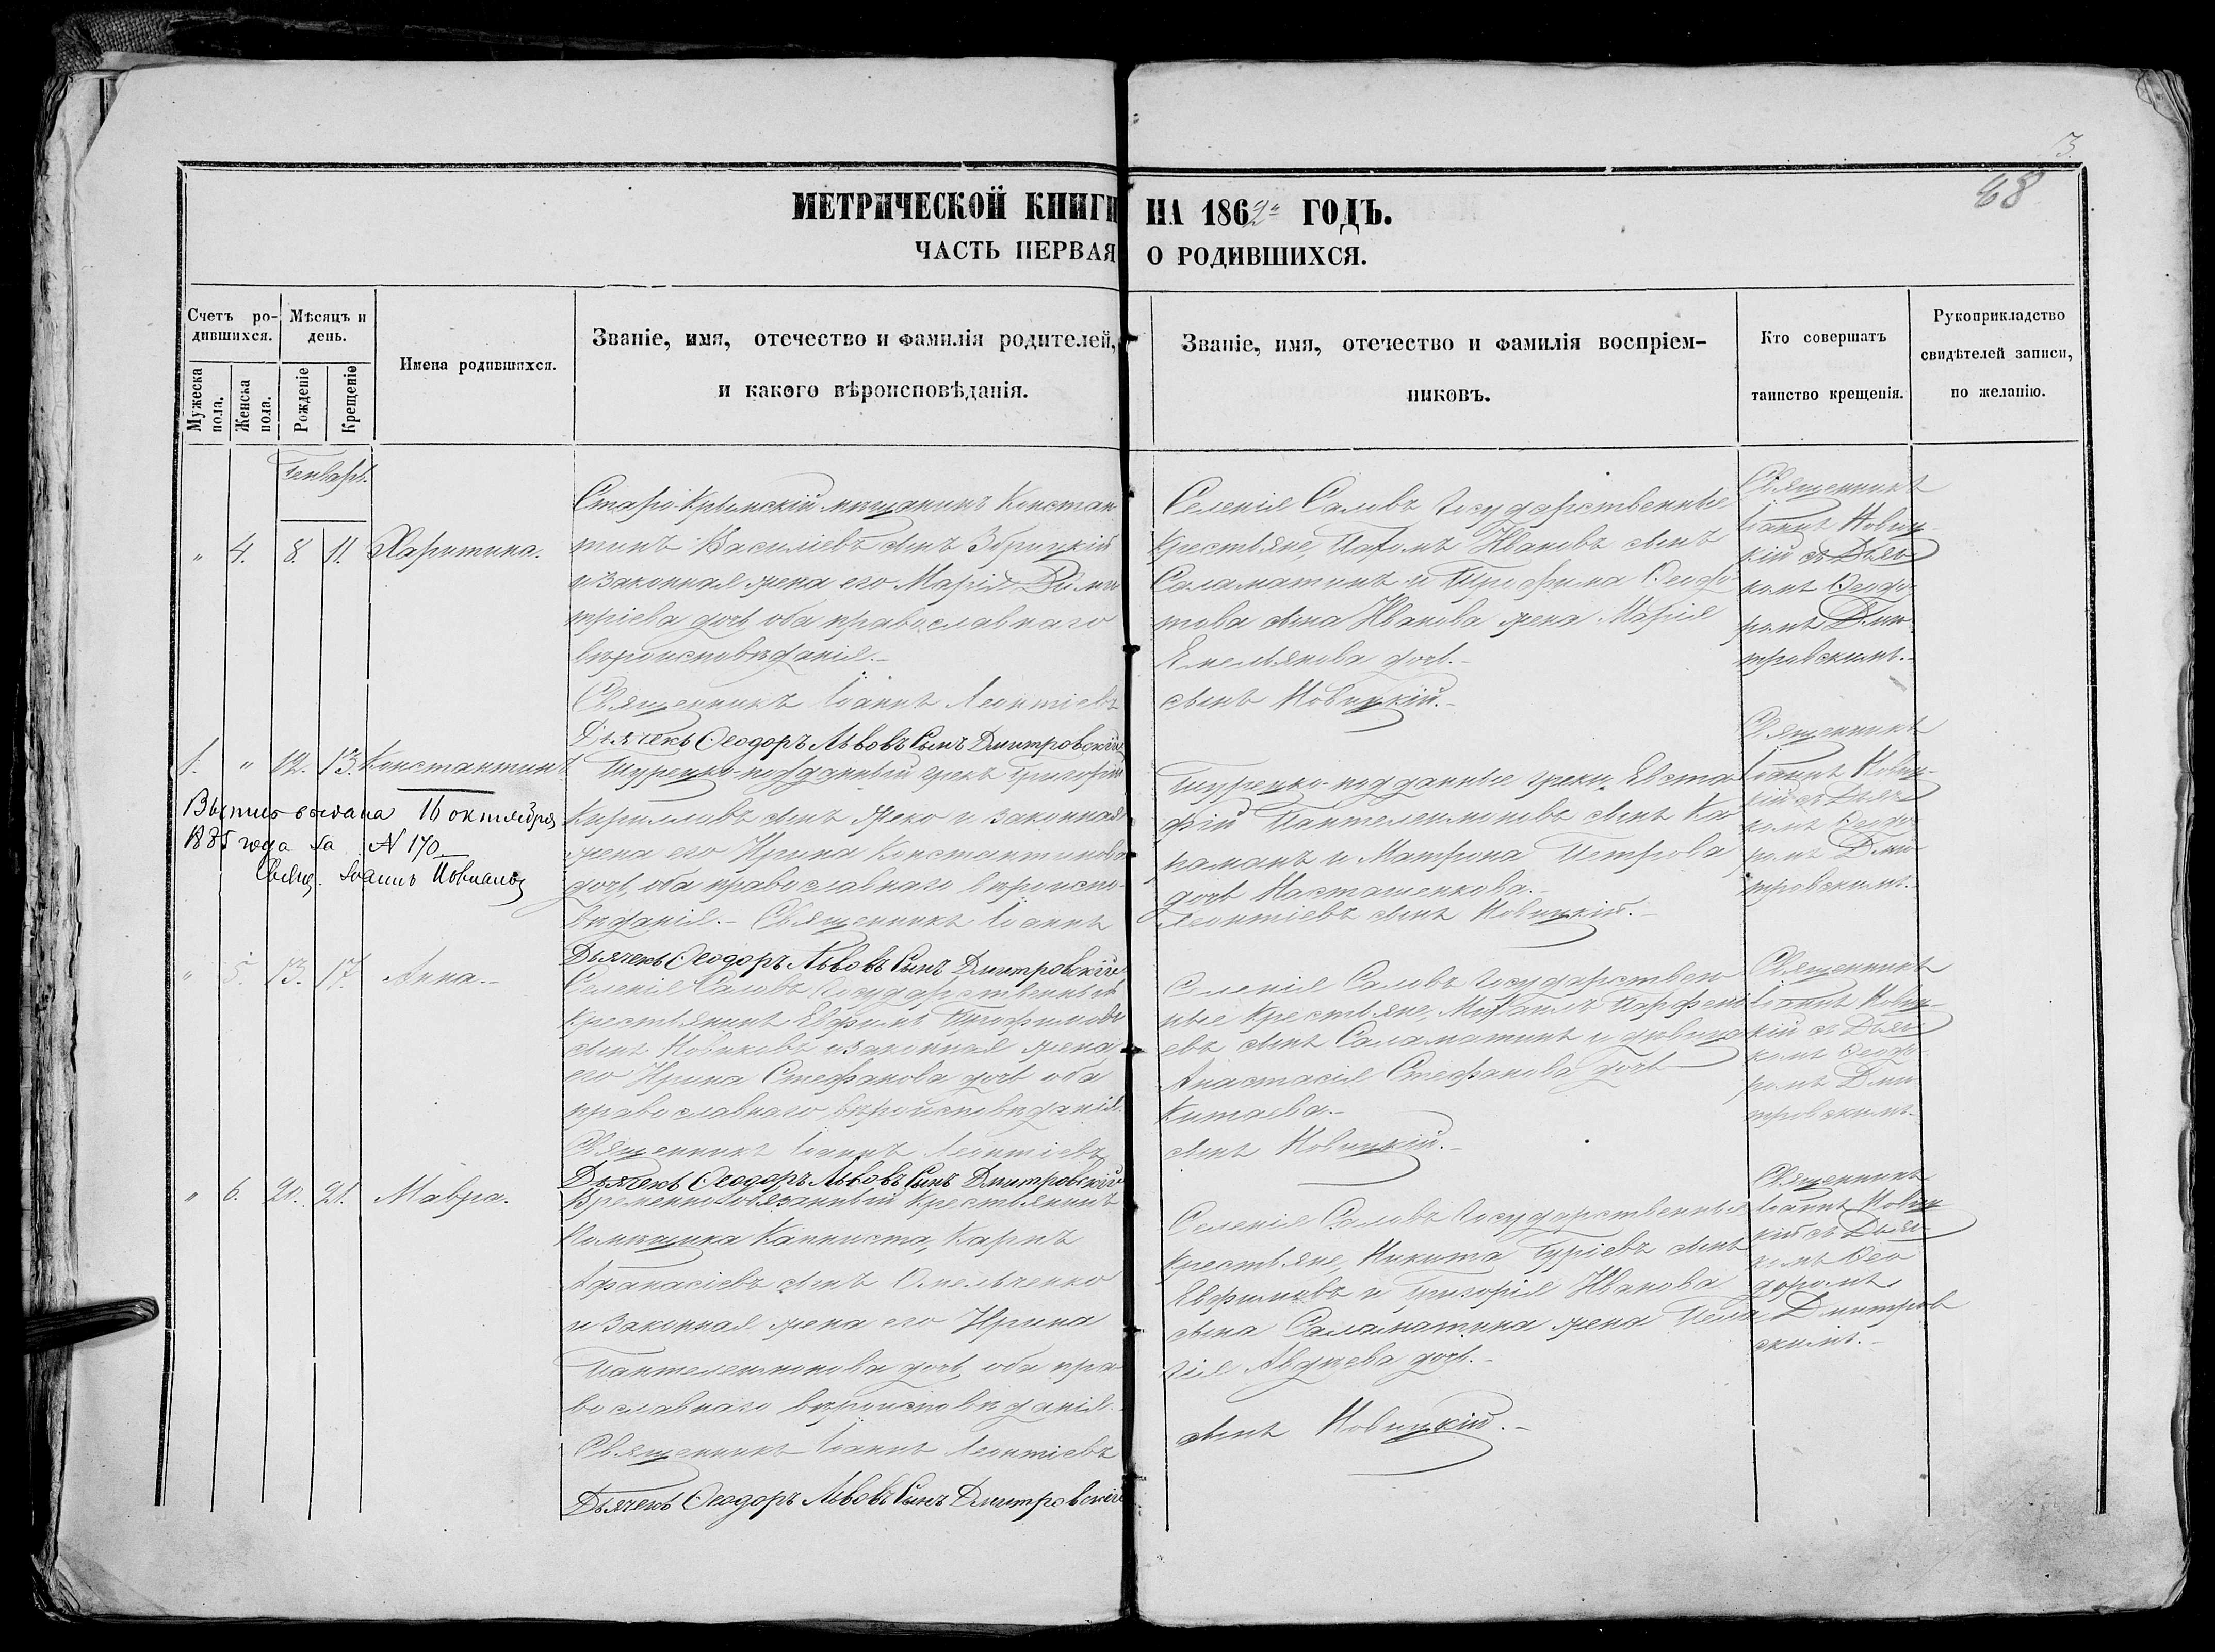 3.
68
МЕТРИЧЕСКОЙ КНИГИ НА 1862й ГОДЪ.
ЧАСТЬ ПЕРВАЯ О РОДИВШИХСЯ.
Счетъ ро-
дившихся.
Мужеска пола.
Женска пола.
Мѣсяцъ и
день.
Рожденіе
Крещеніе
Имена родившихся.
Званіе, имя, отечество и фамилія родителей,
и какого вѣроисповѣданія.
Званіе, имя, отечество и фамилія воспріем-
никовъ.
Кто совершатъ
таинство крещенія.
Рукоприкладство
свидѣтелей записи,
по желанію.
Генварь.
" 4. 8. 11. Харитина.
Старо-Крымскій мѣщанинъ Констан
тинъ Василіевъ сынъ Збрицкій
и законная жена его Марія Дими
тріева дочь, оба православнаго
вѣроисповѣданія.-
Священникъ Іоаннъ Леонтіевъ
Дьячекъ Ѳеодоръ Львовъ Сынъ Дмитровскій
Селенія Саловъ Государственные
крестьяне, Пахомъ Ивановъ сынъ
Саламатинъ и Трофима Ѳеодо
това сына Иванова жена Марія
Емельянова дочь.-
сынъ Новицкій.-
Священникъ
Іоаннъ Новиц-
кій съ Дьяч
комъ Ѳеодо
ромъ Дми
тровскимъ.-
1. " 12. 13. Константинъ
Выпись выдана 16 октября
1885 года за № 170
Свящ. Іоаннъ
Турецко-подданный грекъ Григорій
Кирилловъ сынъ Жеко и законная
жена его Ирина Константинова
дочь, оба православнаго вѣроиспо-
вѣданія.- Священникъ Іоаннъ
Дьячекъ Ѳеодоръ Львовъ Сынъ Дмитровскій
Турецко-подданные греки, Евста
фій Пантелеимоновъ сынъ Ка
паманъ и Матрона Петрова
дочь Насташенкова.-
Леонтіевъ сынъ Новицкій.-
Священникъ
Іоаннъ Новиц-
кій съ Дьяч
комъ Ѳеодо
ромъ Дми
тровскимъ.
" 5. 13. 17. Анна.-
Селенія Саловъ Государственный
крестьянинъ Евфимъ Трофимовъ
сынъ Новиковъ и законная жена
его Ирина Стефанова дочь оба
православнаго вѣроисповѣданія.
Священникъ Іоаннъ Леонтіевъ
Дьячекъ Ѳеодоръ Львовъ Сынъ Дмитровскій
Селенія Саловъ Государствен
ные крестьяне, Михаилъ Парфені
евъ сынъ Саламатинъ и дѣвица
Анастасія Стефанова дочь
Китаева.-
сынъ Новицкій.-
Священникъ
Іоаннъ Новиц-
кій съ Дьяч
комъ Ѳеодо
ромъ Дми
тровскимъ.
" 6. 20. 21. Мавра.
Временно обязанный крестьянинъ
Помѣщика Капниста, Карпъ
Афанасіевъ сынъ Омельченко
и законная жена его Ирина
Пантелеимонова дочь, оба пра
вославнаго вѣроисповѣданія.
Священникъ Іоаннъ Леонтіевъ
Дьячекъ Ѳеодоръ Львовъ Сынъ Дмитровскій
Селенія Саловъ Государственные
крестьяне, Никита Гуріевъ сынъ
Евфимовъ и Григорія Иванова
сына Саламатина жена Пела
гія Авдѣева дочь.-
сынъ Новицкій.-
Священникъ
Іоаннъ Новиц
кій съ Дьяч
комъ Ѳео
доромъ
Дмитров
скимъ.-